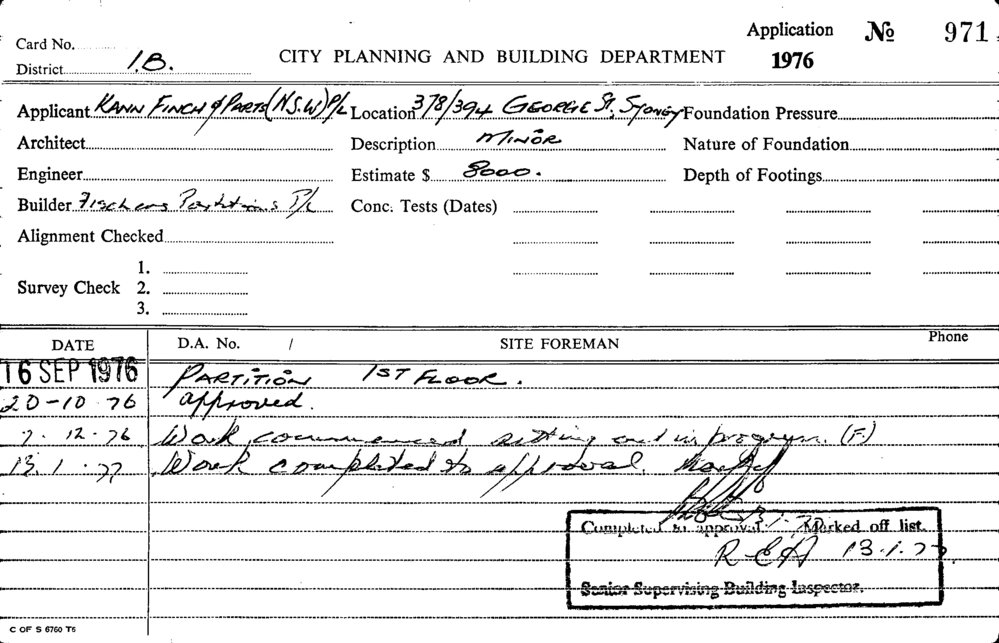 Application № 971
Card No.
1976
District 1B.
CITY PLANNING AND BUILDING DEPARTMENT
Applicant KANN FINCH & PARTS (N.S.W) P/L Location 378/394 GEORGE ST, SYDNEY Foundation Pressure
Architect Description MINOR Nature of Foundation
Engineer Estimate $ 8000. Depth of Footings
Builder Partitions P/L Conc. Tests (Dates)
Alignment Checked
1.
Survey Check 2.
3.
DATE D.A. No. / SITE FOREMAN Phone
16 SEP 1976 PARTITION 1ST FLOOR.
20-10 76 approved.
7. 12. 76 Work commenced setting out in progress. (F.)
13. 1. 77 Work completed to approval.
Completed to approval. Marked off list.
R E H 13.1.77
Senior Supervising Building Inspector.
C OF S 6760 T5